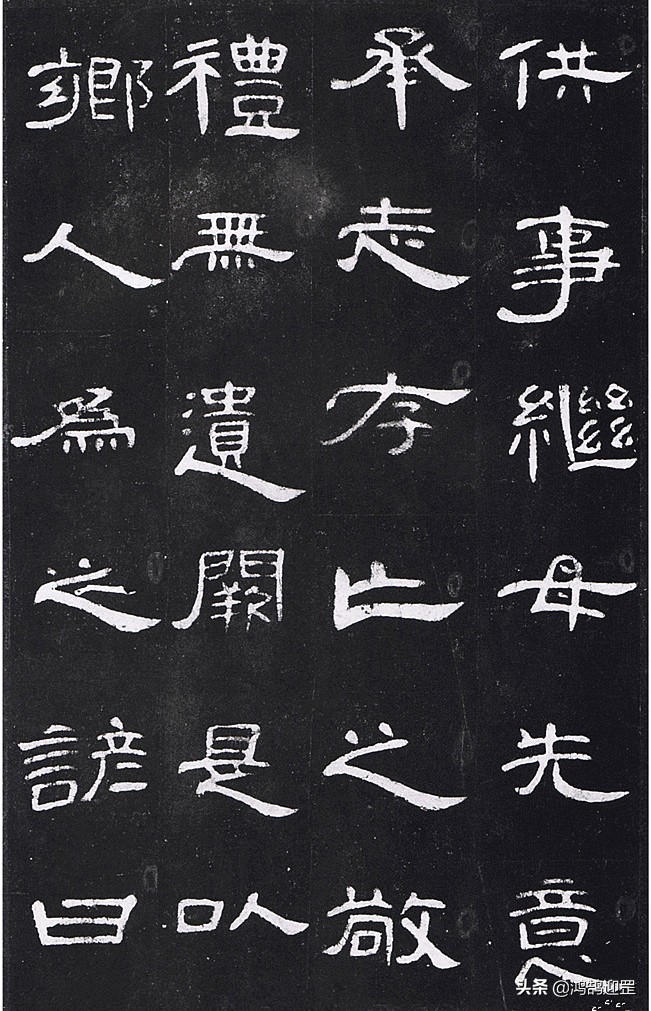 供事繼母先意
承志存亡之敬
禮無遺闕是以
鄉人為之諺曰
头条 @鸿鹄迎罡